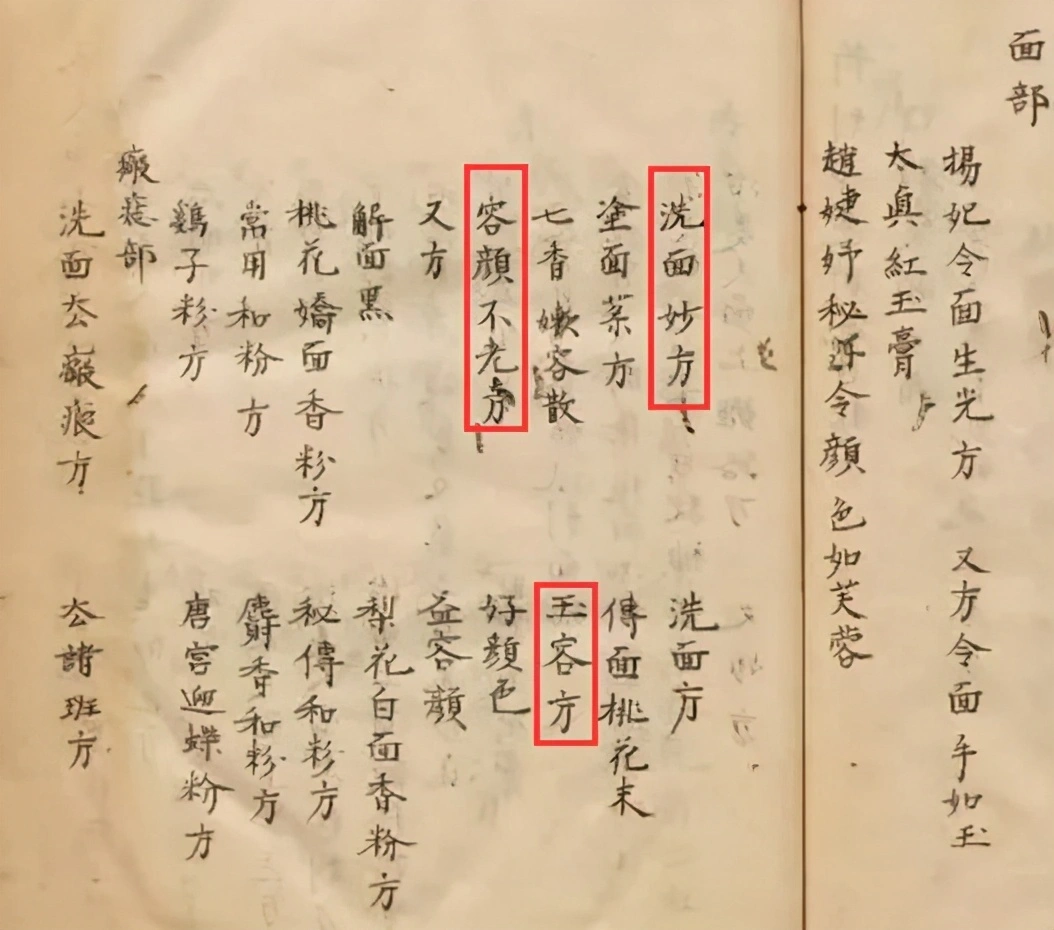 面部
楊妃令面生光方　又方令面手如玉
太眞紅玉膏
趙婕妤秘方令顔色如芙蓉
洗面妙方　洗面方
塗面藥方　傅面桃花末
七香嫩容散　玉容方
容顔不老方　好顔色
又方　益容顔
解面黑　梨花白面香粉方
桃花嬌面香粉方　秘傳和粉方
常用和粉方　麝香和粉方
鷄子粉方　唐宮迎蝶粉方
瘢痣部
洗面去瘢痕方　去諸斑方